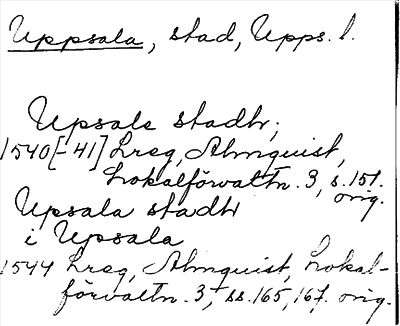 Uppsala, stad, Upps. l.
Upsale stadhr;
1540[-41] Lreg, Almquist,
Lokalförvaltn. 3, s. 151.
orig.
Upsala stadhr
i Upsala
1544 Lreg, Almquist, Lokal-
förvaltn. 3, ss. 165, 167. orig.